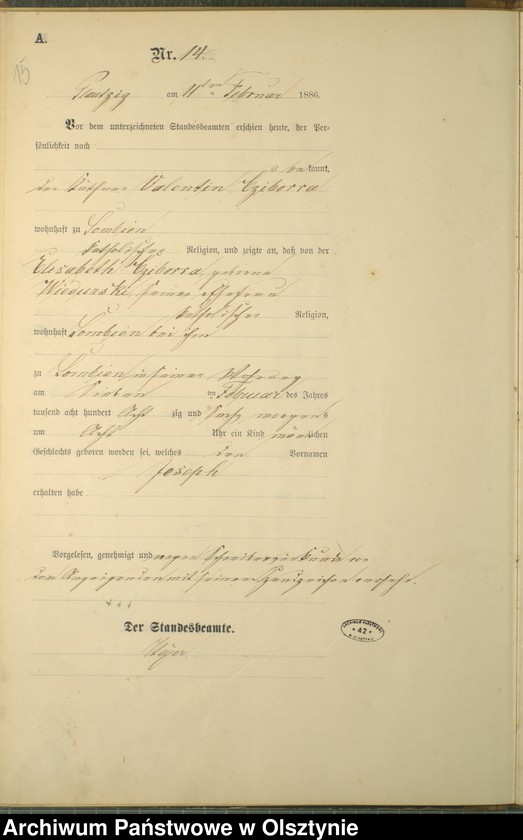 A.
Nr. 14.
15
am 11ten Februar 1886.
Vor dem unterzeichneten Standesbeamten erschien heute, der Per-
sönlichkeit nach
bekannt,
der Käthner Valentin Cziborra
wohnhaft zu
katholischer Religion, und zeigte an, daß von der
Elisabeth Cziborra, geborene
seiner Ehefrau
katholischer Religion,
wohnhaft bei ihm
zu in seiner Wohnung
am Sieben ten Februar des Jahres
tausend acht hundert Acht zig und Sechs morgens
um Acht Uhr ein Kind männlichen
Geschlechts geboren worden sei, welches den Vornamen
Joseph
erhalten habe
Vorgelesen, genehmigt und wegen Schreibensunkunde von
dem Anzeigenden mit seinem Handzeichen versehen.
+++
Der Standesbeamte.
* 42 *
Archiwum Państwowe w Olsztynie